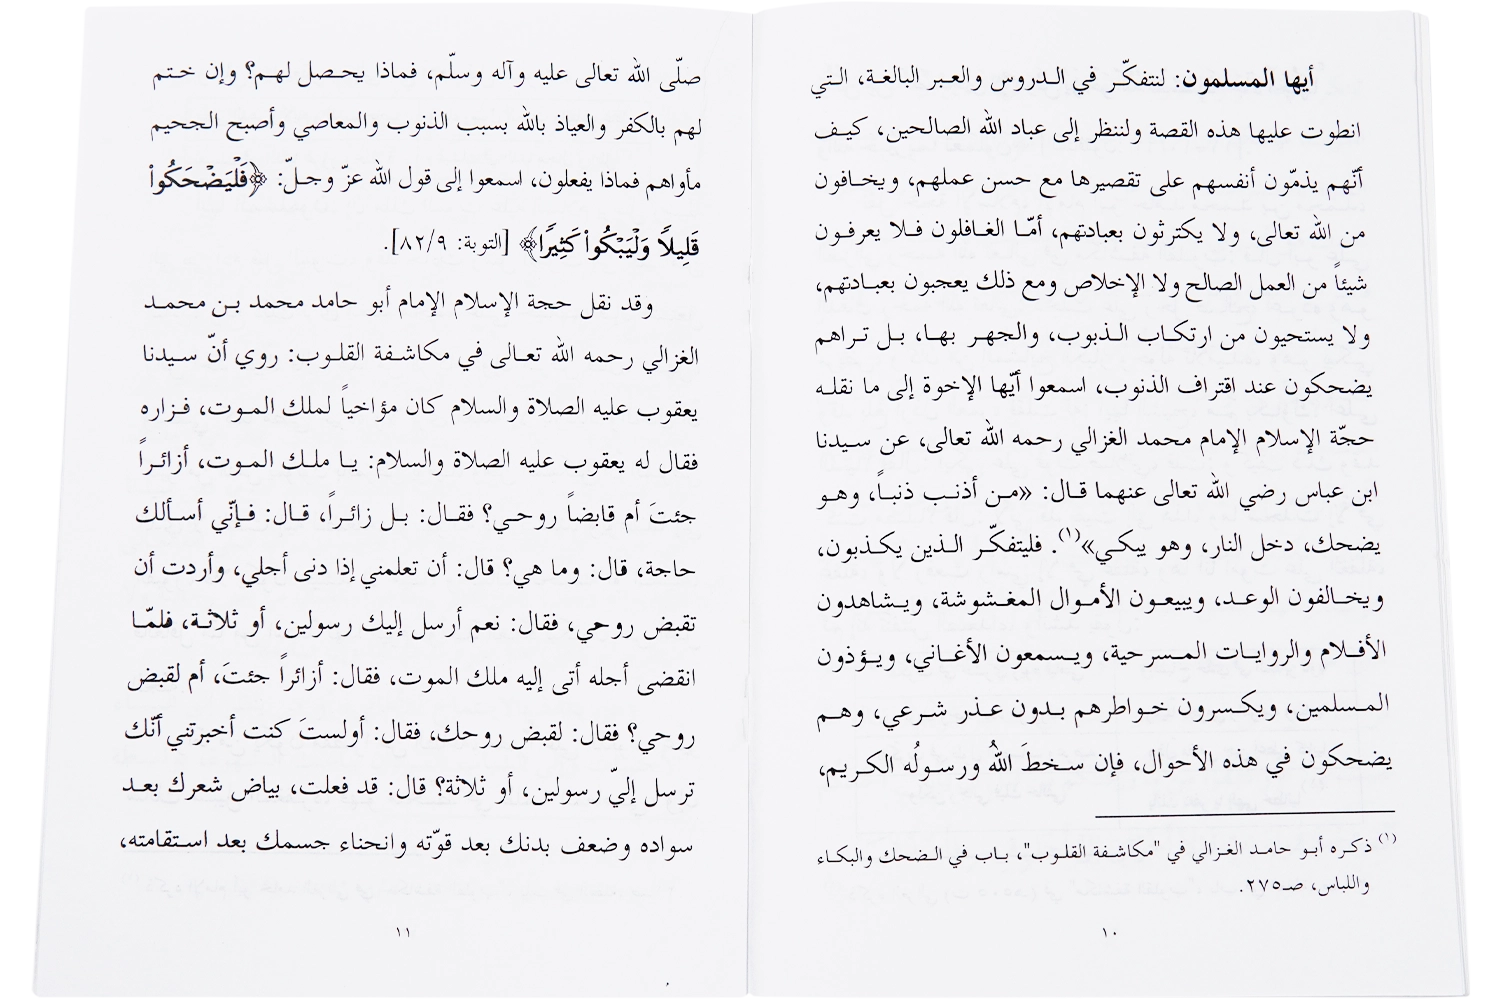 أيها المسلمون: لنتفكّر في الدروس والعبر البالغة، التي
انطوت عليها هذه القصة ولننظر إلى عباد الله الصالحين، كيف
أنّهم يذمّون أنفسهم على تقصيرها مع حسن عملهم، ويخافون
من الله تعالى، ولا يكترثون بعبادتهم، أمّا الغافلون فلا يعرفون
شيئاً من العمل الصالح ولا الإخلاص ومع ذلك يعجبون بعبادتهم،
ولا يستحيون من ارتكاب الذبوب، والجهر بها، بل تراهم
يضحكون عند اقتراف الذنوب، اسمعوا أيّها الإخوة إلى ما نقله
حجّة الإسلام الإمام محمد الغزالي رحمه الله تعالى، عن سيدنا
ابن عباس رضي الله تعالى عنهما قال: «من أذنب ذنباً، وهو
يضحك، دخل النار، وهو يبكي»(١). فليتفكّر الذين يكذبون،
ويخالفون الوعد، ويبيعون الأموال المغشوشة، ويشاهدون
الأفلام والروايات المسرحية، ويسمعون الأغاني، ويؤذون
المسلمين، ويكسرون خواطرهم بدون عذر شرعي، وهم
يضحكون في هذه الأحوال، فإن سخطَ اللهُ ورسولُه الكريم،
(١) ذكره أبو حامد الغزالي في "مكاشفة القلوب"، باب في الضحك والبكاء
واللباس، صـ٢٧٥.
١٠
صلّى الله تعالى عليه وآله وسلّم، فماذا يحصل لهم؟ وإن ختم
لهم بالكفر والعياذ بالله بسبب الذنوب والمعاصي وأصبح الجحيم
مأواهم فماذا يفعلون، اسمعوا إلى قول الله عزّ وجلّ: ﴿فَلْيَضْحَكُواْ
قَلِيلًا وَلْيَبْكُواْ كَثِيرًا﴾ [التوبة: ٨٢/٩].
وقد نقل حجة الإسلام الإمام أبو حامد محمد بن محمد
الغزالي رحمه الله تعالى في مكاشفة القلوب: روي أنّ سيدنا
يعقوب عليه الصلاة والسلام كان مؤاخياً لملك الموت، فزاره
فقال له يعقوب عليه الصلاة والسلام: يا ملك الموت، أزائراً
جئتَ أم قابضاً روحي؟ فقال: بل زائراً، قال: فإنّي أسألك
حاجة، قال: وما هي؟ قال: أن تعلمني إذا دنى أجلي، وأردت أن
تقبض روحي، فقال: نعم أرسل إليك رسولين، أو ثلاثة، فلمّا
انقضى أجله أتى إليه ملك الموت، فقال: أزائراً جئتَ، أم لقبض
روحي؟ فقال: لقبض روحك، فقال: أولستَ كنت أخبرتني أنّك
ترسل إليّ رسولين، أو ثلاثة؟ قال: قد فعلت، بياض شعرك بعد
سواده وضعف بدنك بعد قوّته وانحناء جسمك بعد استقامته،
١١